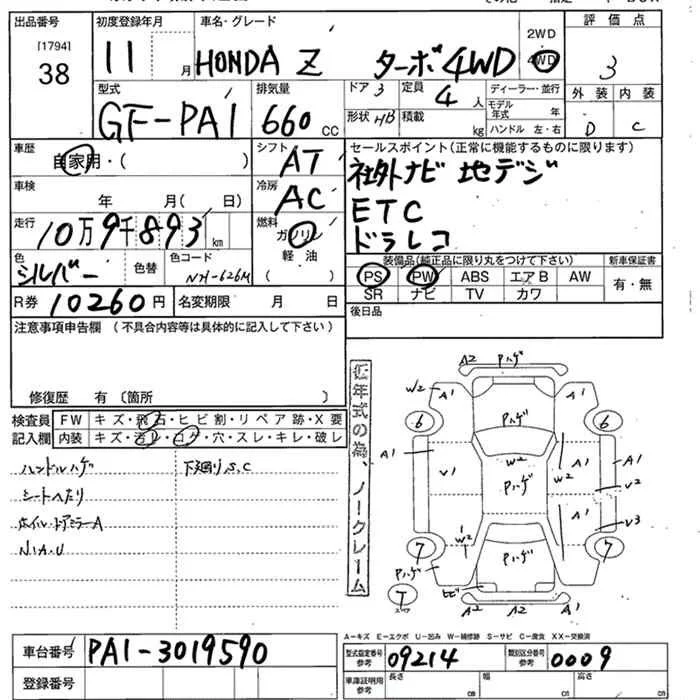 出品番号 初度登録年月 車名・グレード 評価点
[1794]
38 11月 HONDA Z ターボ 4WD 2WD 4WD 3
型式 排気量 ドア 3 定員 4人 ディーラー・並行 外装 内装
GF-PA1 660cc 形状 HB 積載 kg モデル年式 年 D C
ハンドル 左・右
車歴 シフト セールスポイント(正常に機能するものに限ります)
自家用・( ) AT 社外ナビ 地デジ
車検 冷房
年 月( 日) AC ETC
走行 燃料 ドラレコ
10万9千893km ガソリン
色 色替 色コード 軽油 装備品(純正品に限り丸をつけて下さい) 新車保証書
シルバー NH-626M ( ) PS PW ABS エアB AW 有・無
R券 10260円 名変期限 月 日 SR ナビ TV カワ
後日品
注意事項申告欄 (不具合内容等は具体的に記入して下さい)
修復歴 有 (箇所 )
検査員 FW キズ・飛石・ヒビ割・リペア跡・X要
記入欄 内装 キズ・汚レ・コゲ・穴・スレ・キレ・破レ
ハンドルハゲ 下廻りS.C
シートヘたり
ホイル・ドアミラーA
N.I.A.U
低年式の為、ノークレーム
A2 Pハゲ
W2 A1 A1
6 Pハゲ 6
A1 V1 W2 W2 A1 A1
Pハゲ V2
A1 V3
W2
7 Pハゲ 7
Pハゲ A1
T ヒビ A2 A2
A-キズ E-エクボ U-凹み W-補修跡 S-サビ C-腐食 XX-交換済
車台番号 PA1-3019590 型式指定番号 参考 09214 類別区分番号 参考 0009
登録番号 車庫証明用 参考 長さ cm 幅 cm 高さ cm